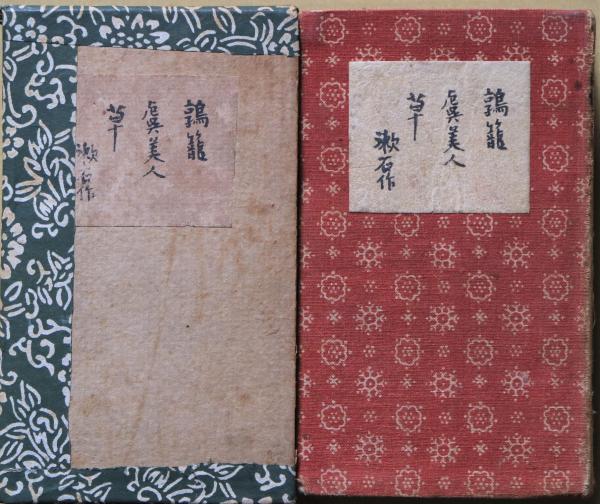 鶉籠
虞美人
草
漱石作
鶉籠
虞美人
草
漱石作